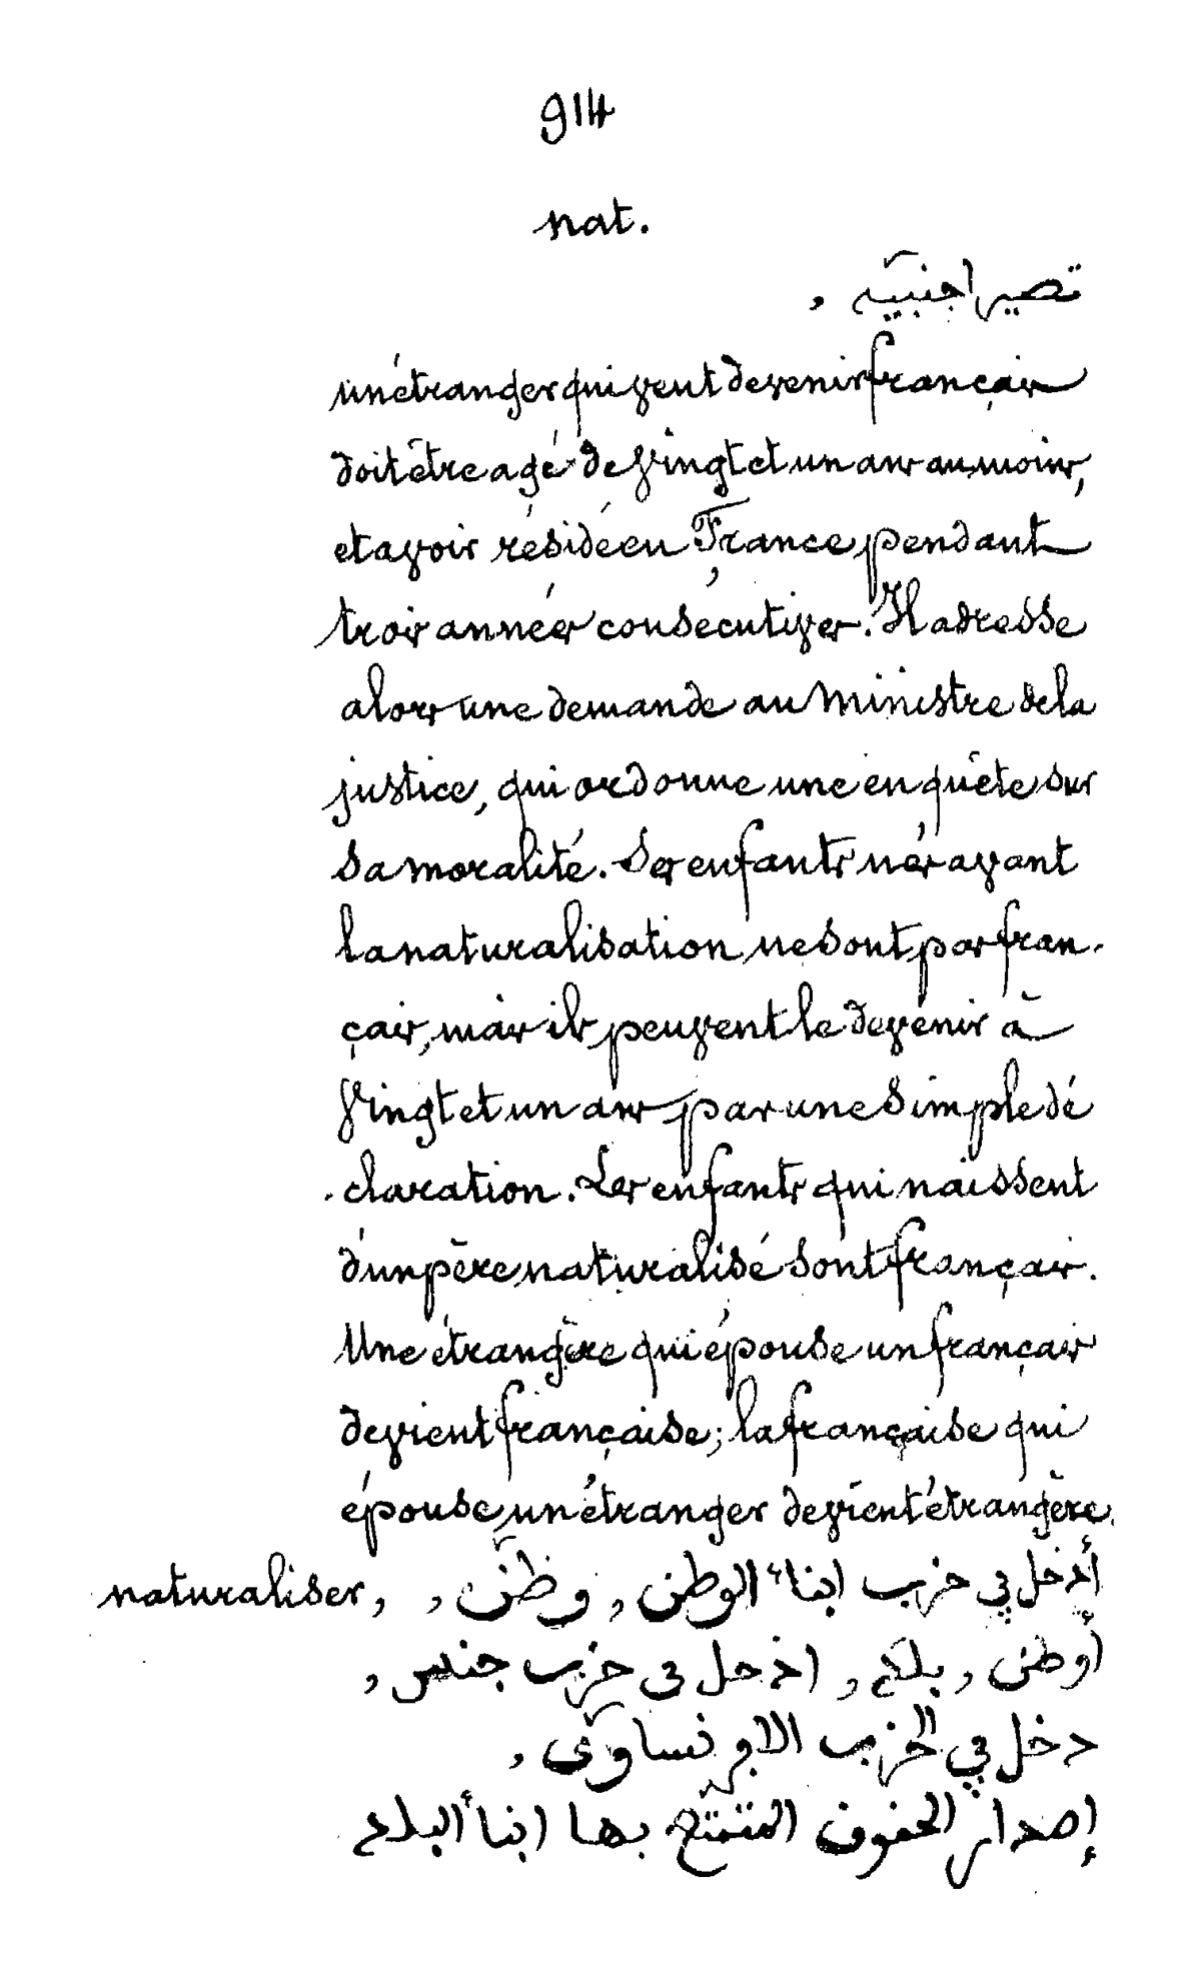 914
nat.
تصير اجنبيّه ,
un étranger qui veut devenir français
doit être agé de vingt et un ans au moins,
et avoir résidé en France, pendant
trois années consécutives. Il adresse
alors une demande au Ministre de la
justice, qui ordonne une enquête sur
sa moralité. Ses enfants nés avant
la naturalisation ne sont pas fran-
çais, mais ils peuvent le devenir à
vingt et un ans par une simple dé
-claration. Les enfants qui naissent
d'un père naturalisé sont français.
Une étrangère qui épouse un français
devient française; la française qui
épouse un étranger devient étrangère.
naturaliser, أدخل في حزب ابناء الوطن , وطّن ,
أوطن , بلد , ادخل فى حزب جنس ,
دخل في الحزب الافرنساوىّ ,
إصدار الحقوق المتمتّع بها ابناء البلاد